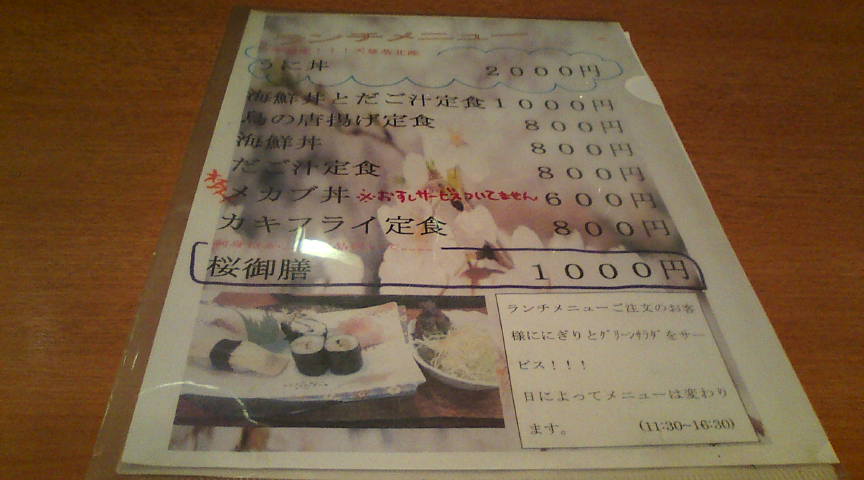 ランチメニュー
うに丼 2000円
海鮮丼とだご汁定食 1000円
鳥の唐揚げ定食 800円
海鮮丼 800円
だご汁定食 800円
メカブ丼 ※おすしサービスついてません 600円
カキフライ定食 800円
桜御膳 1000円
ランチメニューご注文のお客
様ににぎりとグリーンサラダをサー
ビス!!!
日によってメニューは変わり
ます。 (11:30~16:30)